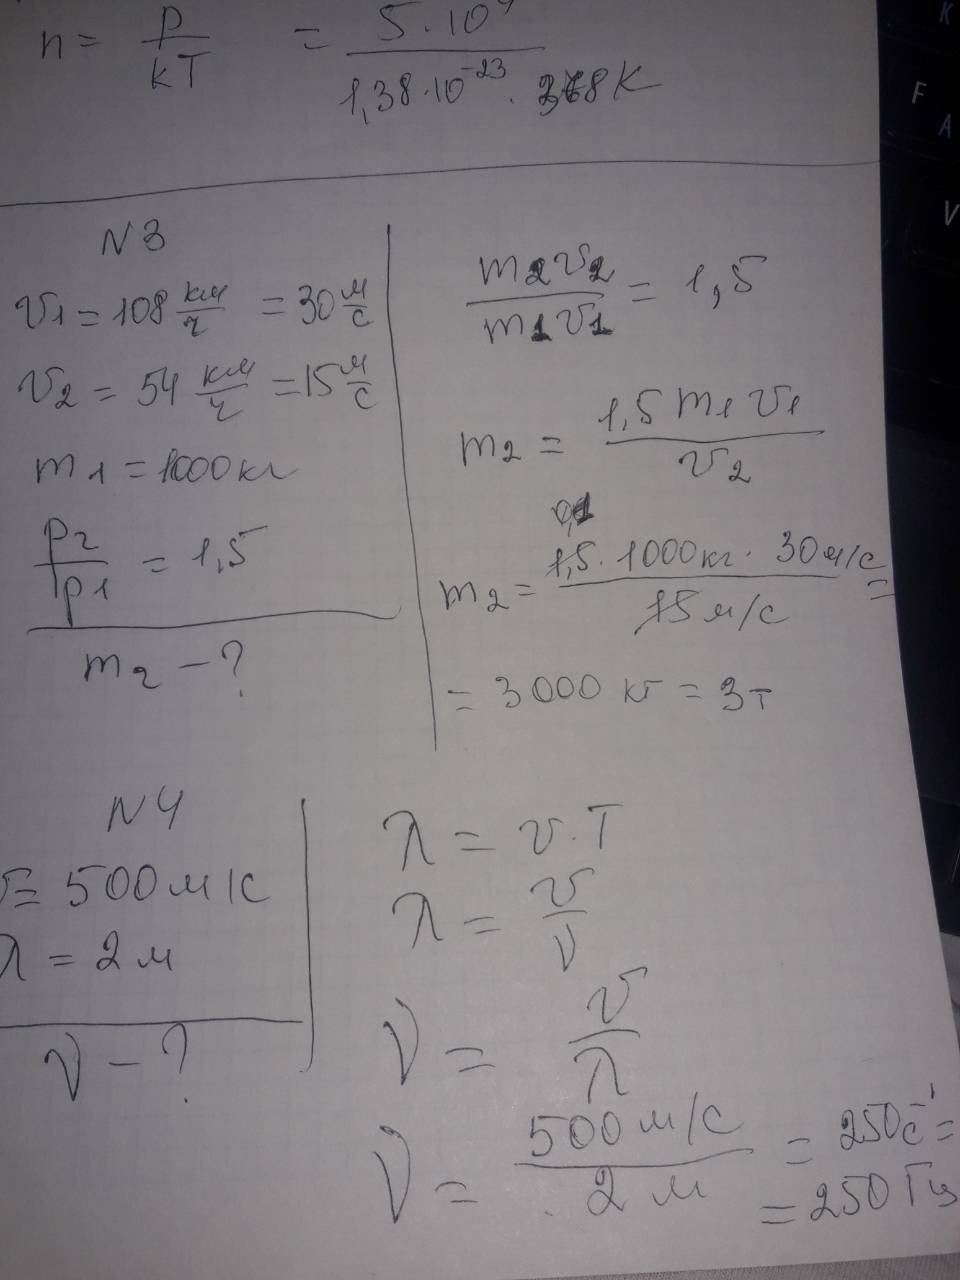 n = p/kT = 5·10/1,38·10⁻²³ · K
N3
v1 = 108 км/ч = 30 м/с
v2 = 54 км/ч = 15 м/с
m1 = 1000 кг
p2/p1 = 1,5
m2 - ?
m2v2/m1v1 = 1,5
m2 = 1,5 m1 v1/v2
m2 = 1,5 · 1000 кг · 30 м/с/15 м/с =
= 3000 кг = 3т
N4
= 500 м/с
λ = 2 м
ν - ?
λ = v · T
λ = v/ν
ν = v/λ
ν = 500 м/с/2 м = 250 с⁻¹ =
= 250 Гц
K
F
A
V